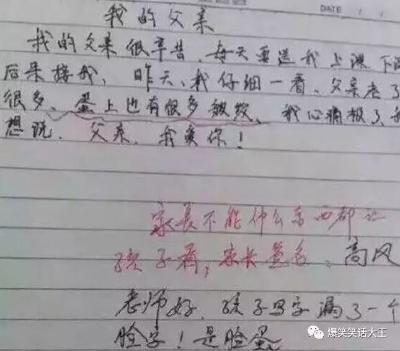 DATE
我的父亲
我的父亲很辛苦,每天要送我上课下课
后来接我,昨天,我仔细一看,父亲老了
很多,蛋上也有很多皱纹,我心痛极了,我
想说,父亲,我爱你!
家长不能什么东西都让
孩子看,家长签名:高风
老师好,孩子写字漏了一个
脸字!是脸蛋
爆笑笑话大王